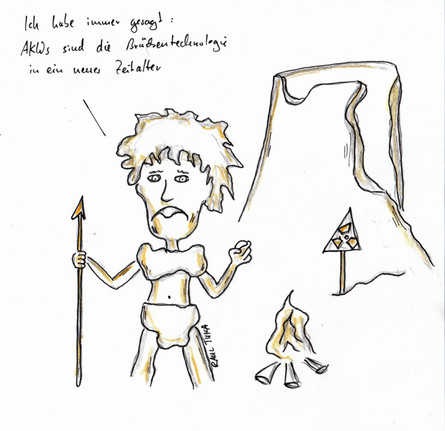 Ich habe immer gesagt:
AKWs sind die Brückentechnologie
in ein neues Zeitalter
RAUL TUKA